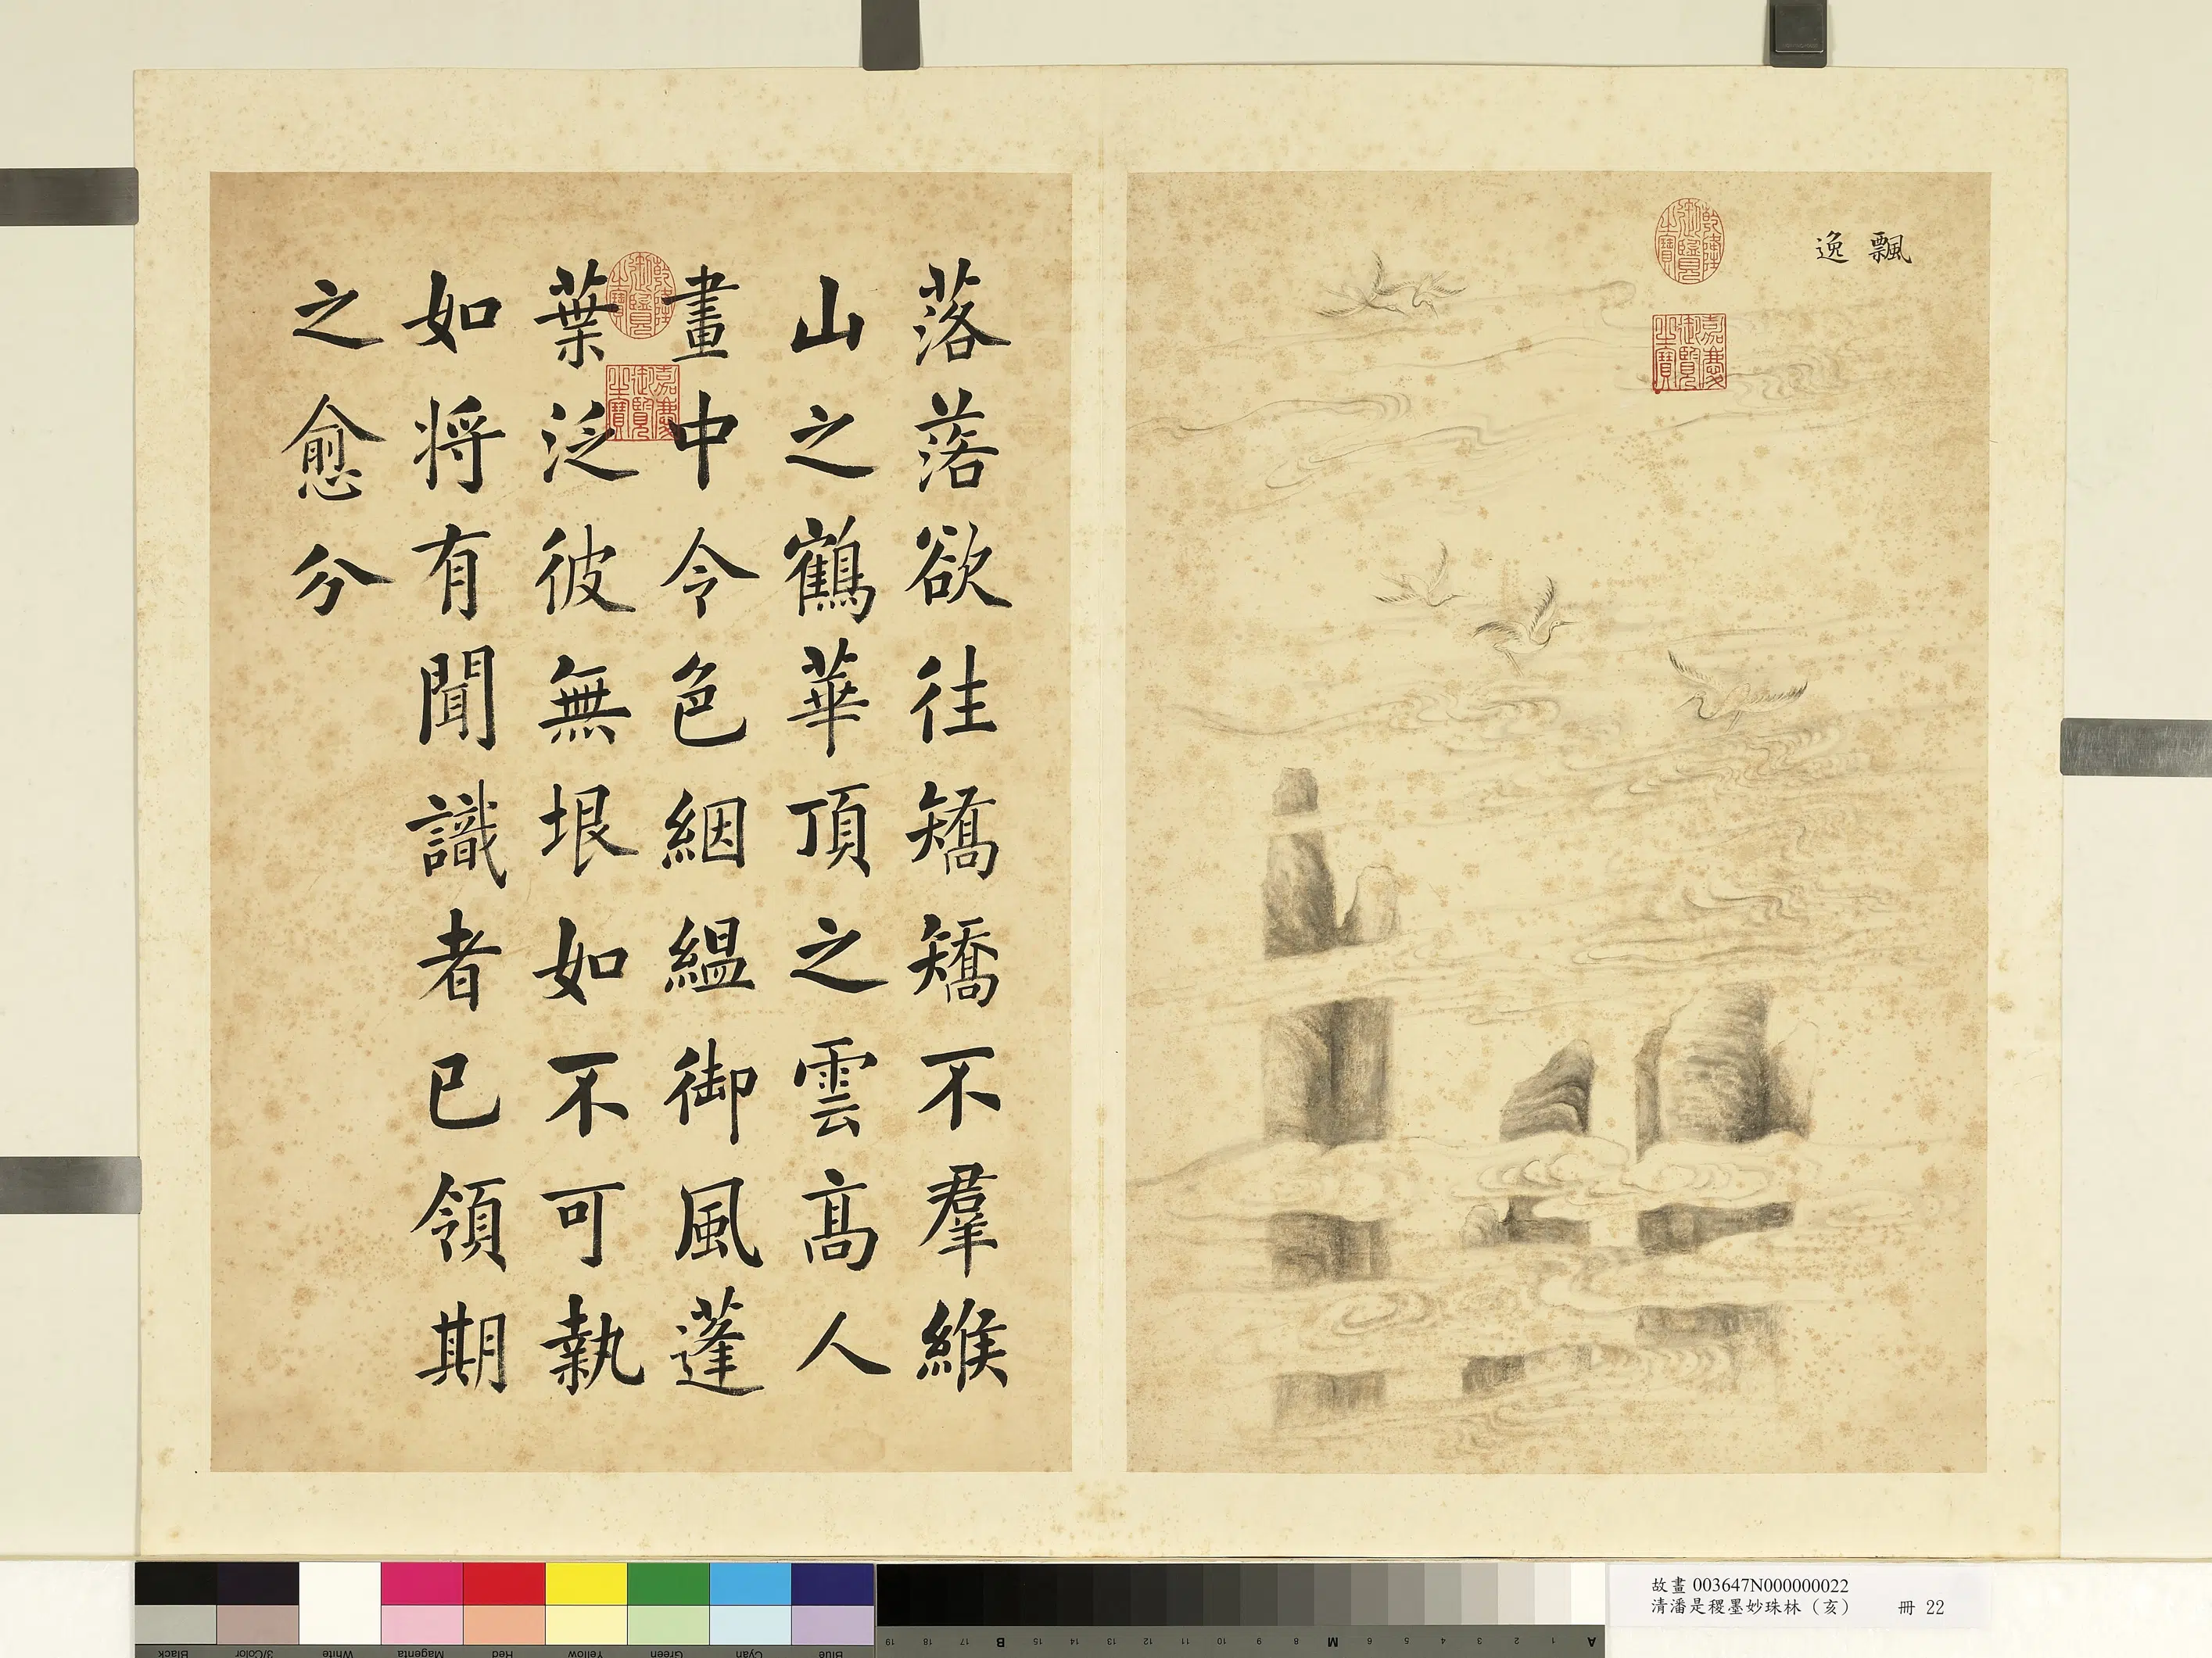 飄逸
乾隆御覽之寶
嘉慶御覽之寶
落落欲往矯矯不羣緱
山之鶴華頂之雲高人
畫中令色絪縕御風蓬
葉泛彼無垠如不可執
如將有聞識者已領期
之愈分
乾隆御覽之寶
嘉慶御覽之寶
故畫 003647N000000022
清潘是稷墨妙珠林（亥） 冊 22
Black 3/Color White Magenta Red Yellow Green Cyan Blue
19 18 17 B 15 14 13 12 11 10 9 8 M 6 5 4 3 2 1 A